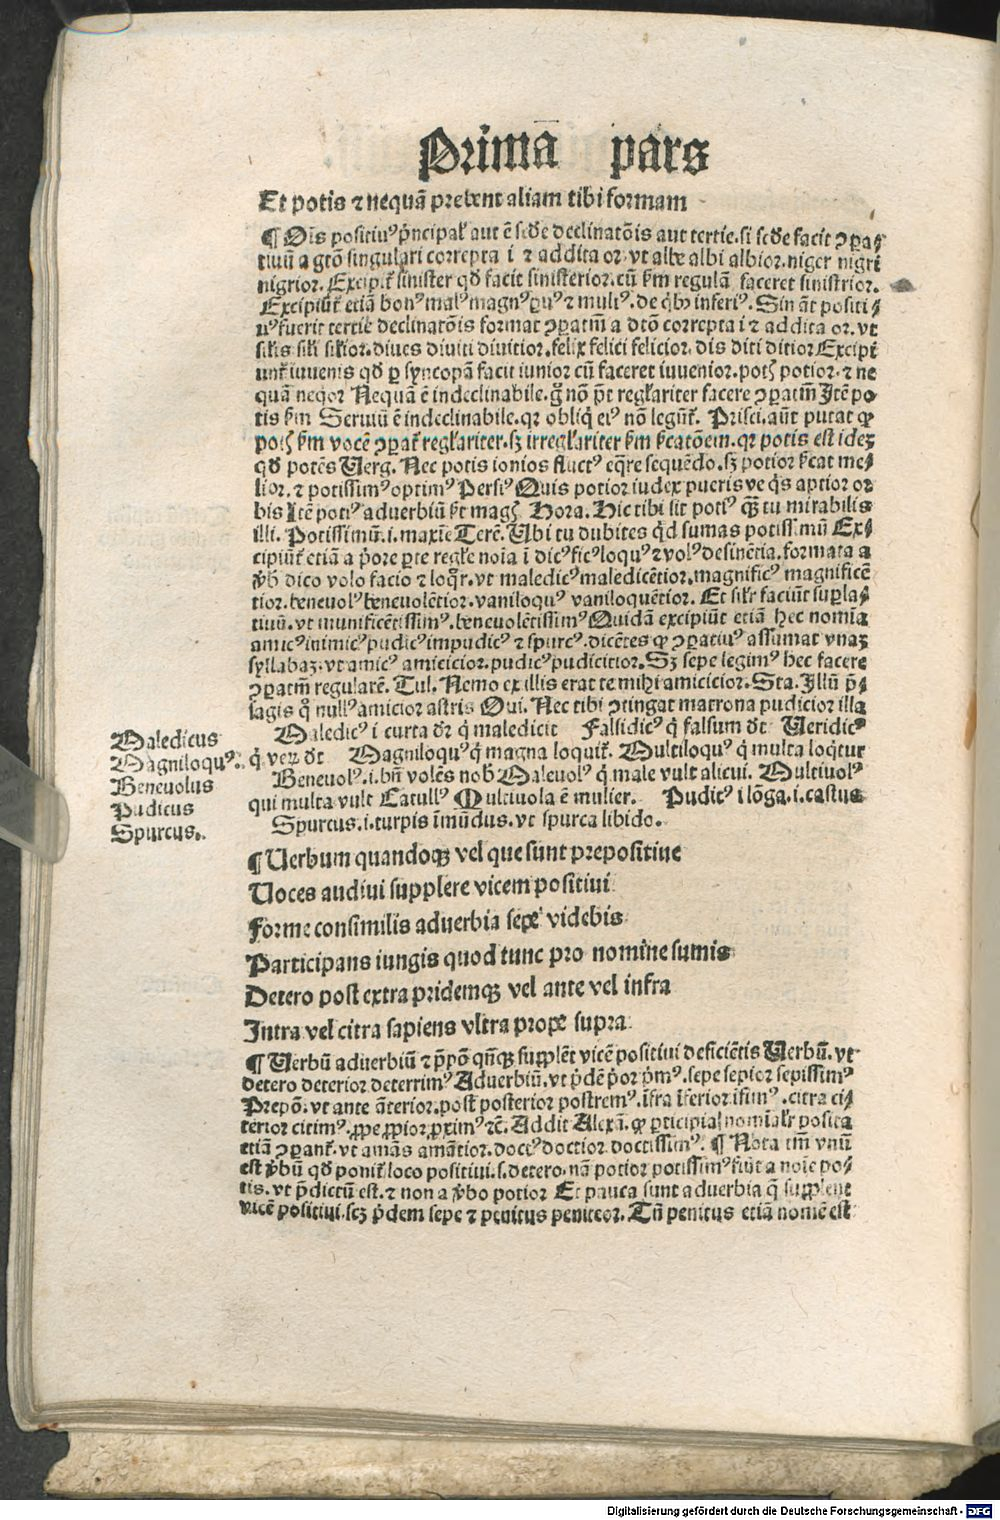 Primā pars
Et potis ⁊ nequā prebent aliam tibi formam
¶ Oīs positiuꝰ p̄ncipał aut ē scd̓e declinatōis aut tertie. si scd̓e facit ꝯꝑa⸗
tiuū a gtō singulari correpta i ⁊ addita or. vt albe albi albior. niger nigri
nigrior. Excipit᷑ sinister qđ facit sinisterior. cū ẜm regulā faceret sinistrior.
Excipiūt᷑ etiā bonꝰ malꝰ magnꝰ ꝑuꝰ ⁊ multꝰ. de qͥbꝰ inferiꝰ. Sin āt positi⸗
uꝰ fuerit tertie declinatōis format ꝯꝑatīū a dtō correpta i ⁊ addita or. vt
silis sili silior. diues diuiti diuitior. felix felici felicior. dis diti ditior Excipi
unt᷑ iuuenis qđ ꝑ syncopā facit iunior cū faceret iuuenior. potꝭ potior. ⁊ ne
quā neqor Nequā ē indeclinabile. gͦ nō pōt regulariter facere ꝯꝑatīū Itē po
tis ẜm Seruiū ē indeclinabile. qꝛ obliqͥ eiꝰ nō legūt᷑. Prisci. aūt putat ꝙ
potꝭ ẜm vocē ꝯꝑat᷑ regłariter. sꝫ irregłariter ẜm ẜcatōem. qꝛ potis est ideꝫ
qđ potēs Uerg. Nec potis ionios fluctꝰ eq̄re sequēdo. sꝫ potior ẜcat me⸗
lior. ⁊ potissimꝰ optimꝰ Persiꝰ Quis potior iudex pueris ve qͥs aptior or
bis Itē potiꝰ aduerbiū ẜt magꝭ Hora. Hic tibi sit potiꝰ qꝫ̄ tu mirabilis
illi. Potissimū. i. maxīe Terē. Ubi tu dubites qͥd sumas potissimū Ex⸗
cipiūt᷑ etiā a p̓ore ꝑte regłe noīa ī dicꝰ ficꝰ loquꝰ ⁊ volꝰ desinētia. formata a
v̓bꝭ dico volo facio ⁊ loqͦr. vt maledicꝰ maledicētior. magnificꝰ magnificē
tior. beneuolꝰ beneuolētior. vaniloquꝰ vaniloquētior. Et siłr faciūt suꝑla⸗
tiuū. vt munificētissimꝰ. beneuolētissimꝰ Quidā excipiūt etiā hec nomīa
amicꝰ inimicꝰ pudicꝰ impudicꝰ ⁊ spurcꝰ. dicētes ꝙ ꝯꝑatiuꝰ assumat vnaꝫ
syllabaꝫ. vt amicꝰ amicicior. pudicꝰ pudicitior. Sꝫ sepe legimꝰ hec facere
ꝯꝑatīū regularē. Tul. Nemo ex illis erat te mihi amicicior. Sta. Illū p̄⸗
sagis qͦ nullꝰ amicior astris Oui. Nec tibi ꝯtingat matrona pudicior illa
Maledicꝰ i curta dr̄ qͥ maledicit Falsidicꝰ qͥ falsum dt̄ Ueridicꝰ
qͥ verꝫ dt̄ Magniloquꝰ qͥ magna loquit᷑. Multiloquꝰ qͥ multa loqͥtur
Beneuolꝰ. i. bn̄ volēs nobꝭ Maleuolꝰ qͥ male vult alicui. Multiuolꝰ
qui multa vult Catullꝰ Multiuola ē mulier. Pudicꝰ i lōga. i. castus
Spurcus. i. turpis īmūdus. vt spurca libido.
Maledicus
Magniloquꝰ.
Beneuolus
Pudicus
Spurcus.
¶ Uerbum quandoqꝫ vel que sunt prepositiue
Uoces audiui supplere vicem positiui
Forme consimilis aduerbia sepe videbis
Participans iungis quod tunc pro nomine sumis
Detero post extra pridemqꝫ vel ante vel infra
Intra vel citra sapiens vltra prope supra
¶ Uerbū aduerbiū ⁊ p̄pō qn̄qꝫ supplēt vicē positiui deficiētis Uerbū. vt
detero deterior deterrimꝰ Aduerbiū. vt p̓dē p̓or p̓mꝰ. sepe sepior sepissimꝰ
Prepō. vt ante āterior. post posterior postremꝰ. īfra īferior īfimꝰ. citra ci⸗
terior citimꝰ. ꝓpe ꝓpior ꝓximꝰ ⁊c̄. Addit Alexā. ꝙ ꝑticipia nomīałr posita
etiā ꝯꝑant᷑. vt amās amātior. doctꝰ doctior doctissimꝰ. ¶ Nota tm̄ vnū
est v̓bū qđ ponit᷑ loco positiui. s. detero. nā potior potissimꝰ fiūt a noīe po⸗
tis. vt p̄dictū est. ⁊ non a v̓bo potior Et pauca sunt aduerbia q̄ supplent
vicē positiui. scꝫ p̓dem sepe ⁊ penitus penitior. Tn̄ penitus etiā nomē est
Digitalisierung gefördert durch die Deutsche Forschungsgemeinschaft - DFG